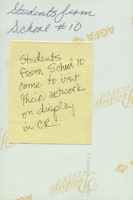 Students from
School #10
Students
from School 10
come to visit
their artwork
on display
in CR
AGFA